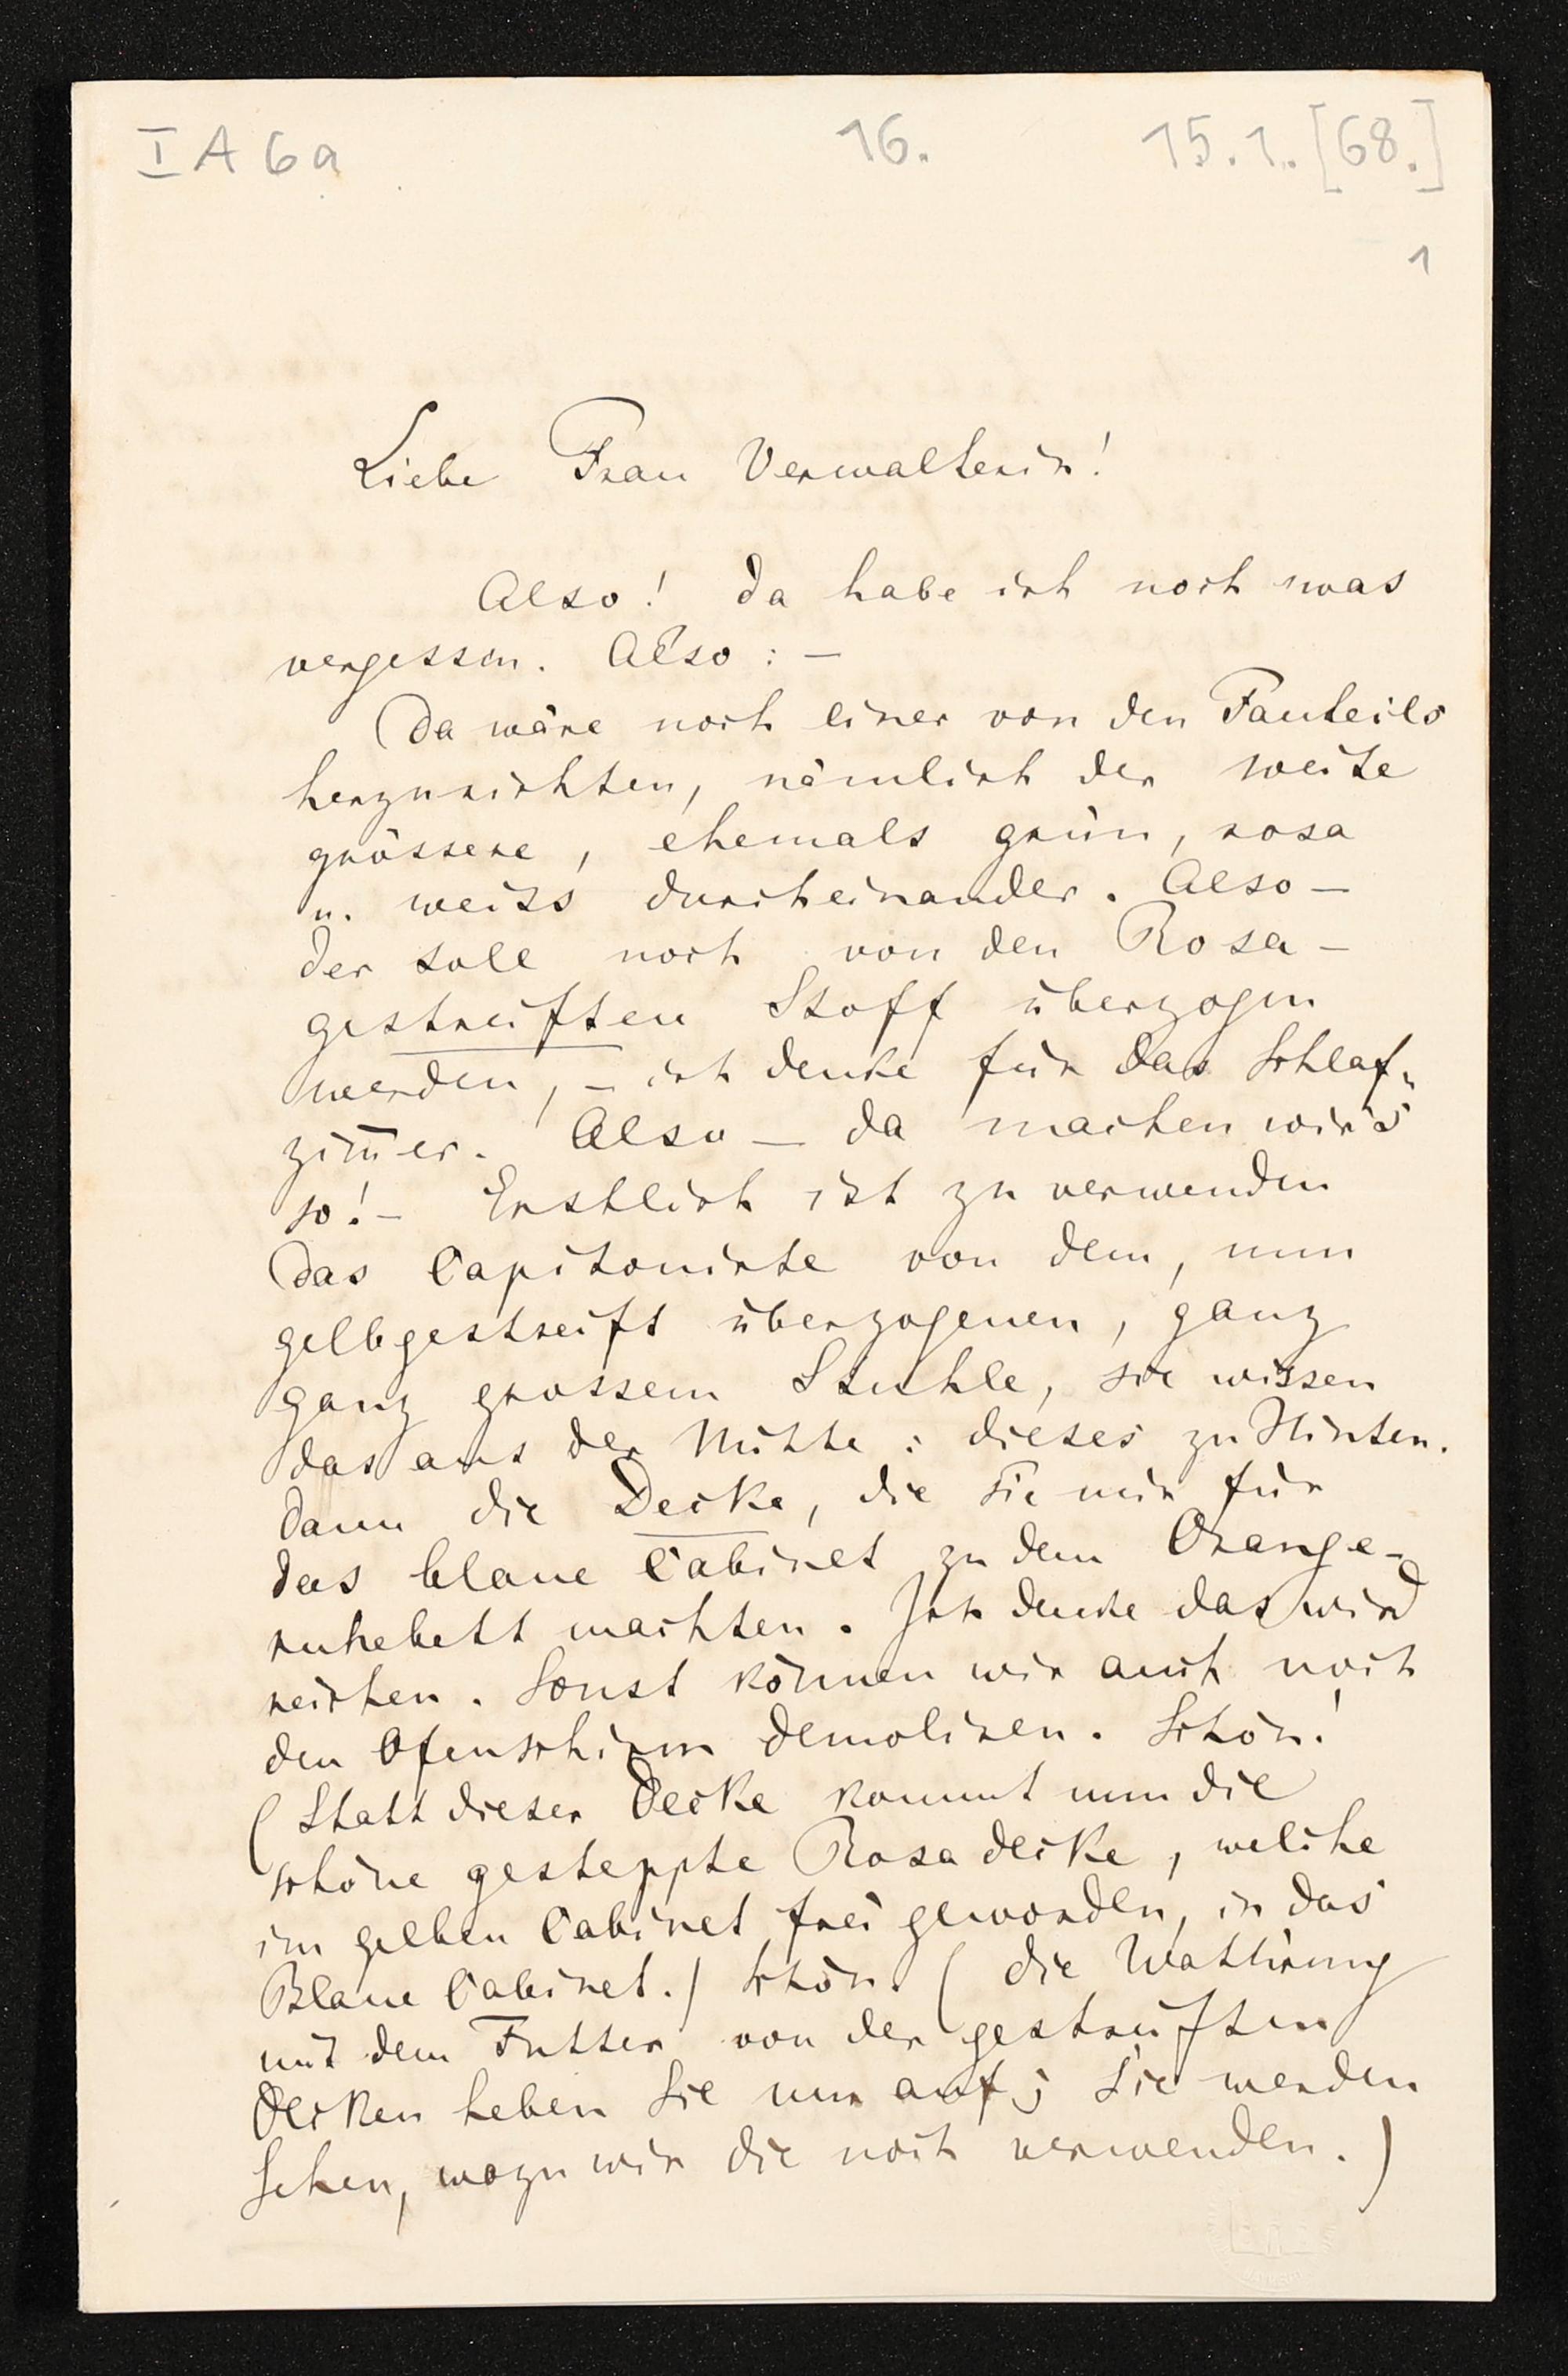 I A 6a 16. 15.1.[68.]
1
Liebe Frau Verwalterin!
Also! Da habe ich noch was
vergessen. Also: —
Da wäre noch einer von den Fauteils
herzurichten, nämlich der weite
grössere, ehemals grün, rosa
u. weiss durcheinander. Also —
der soll noch von den Rosa-
gestreiften Stoff überzogen
werden, – ich denke für das Schlaf-
zim̅er. Also — da machen wir's
so! – Erstlich ist zu verwenden
das Capitonirte von dem, nun
gelbgestreift überzogenen, ganz
ganz grossem Stuhle, sie wissen
das aus der Mitte: dieses zu Hinten.
Dann die Decke, die Sie mir für
das blaue Cabinet zu dem Orange-
ruhebett machten. Ich denke das wird
reichen. Sonst können wir auch noch
den Ofenschirm demoliren. Schön!
(Statt dieser Decke kommt nun die
schöne gesteppte Rosadecke, welche
im gelben Cabinet frei geworden, in das
Blaue Cabinet.) Schön. (Die Wattirung
mit dem Futter von der gestreiften
Decken heben Sie nur auf; Sie werden
sehen, wozu wir die noch verwenden.)